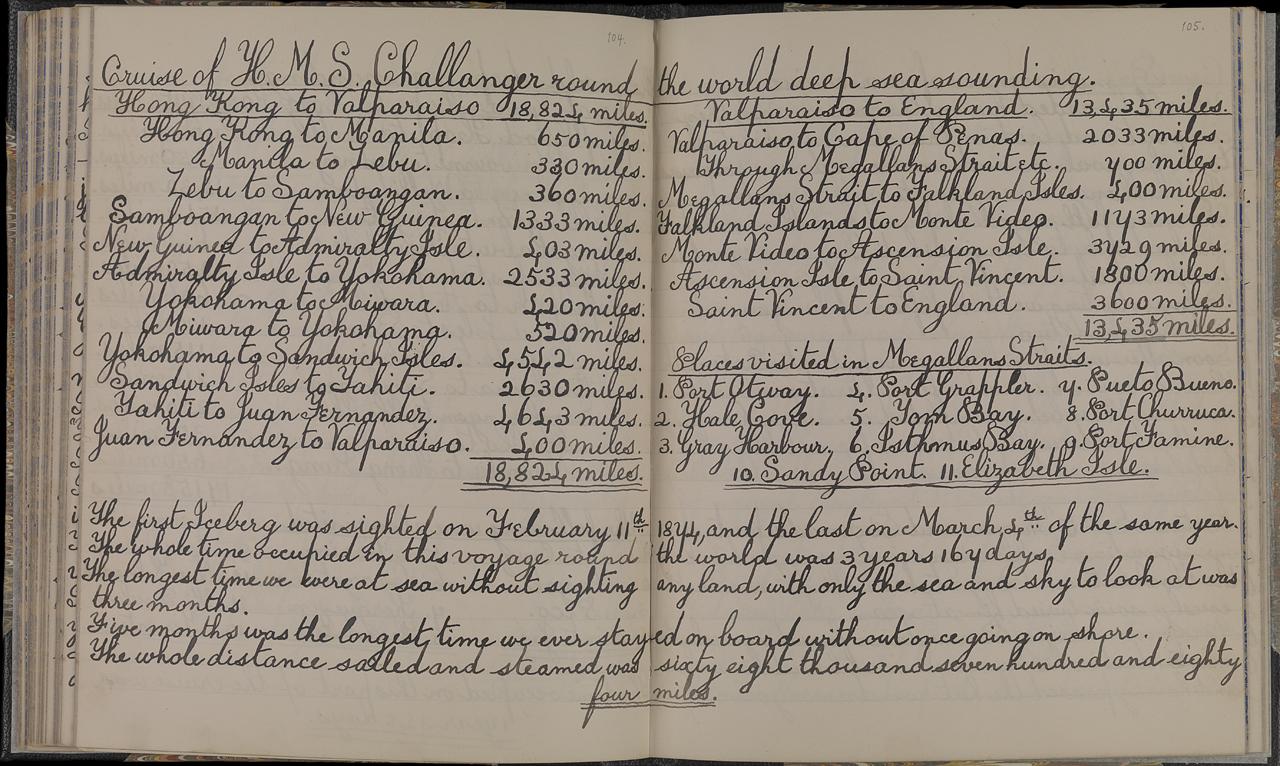 104.
105.
Cruise of H.M.S. Challanger round the world deep sea sounding.
Hong Kong to Valparaiso 18,824 miles.
Hong Kong to Manila. 650 miles.
Manila to Zebu. 330 miles.
Zebu to Samboangan. 360 miles.
Samboangan to New Guinea. 1333 miles.
New Guinea to Admiralty Isle. 403 miles.
Admiralty Isle to Yokohama. 2533 miles.
Yokohama to Miwara. 420 miles.
Miwara to Yokohama. 520 miles.
Yokohama to Sandwich Isles. 4542 miles.
Sandwich Isles to Tahiti. 2630 miles.
Tahiti to Juan Fernandez. 4643 miles.
Juan Fernandez to Valparaiso. 400 miles.
18,824 miles.
Valparaiso to England. 13,435 miles.
Valparaiso to Cape of Penas. 2033 miles.
Through Megallans Strait etc. 700 miles.
Megallans Strait to Falkland Isles. 400 miles.
Falkland Islands to Monte Video. 1173 miles.
Monte Video to Ascension Isle. 3729 miles.
Ascension Isle to Saint Vincent. 1800 miles.
Saint Vincent to England. 3600 miles.
13,435 miles.
Places visited in Megallans Straits.
1. Port Otway. 4. Port Grappler. 7. Pueto Bueno.
2. Hale Cove. 5. Tom Bay. 8. Port Churruca.
3. Gray Harbour. 6. Isthmus Bay. 9. Port Famine.
10. Sandy Point. 11. Elizabeth Isle.
The first Iceberg was sighted on February 11th 1874, and the last on March 4th of the same year.
The whole time occupied in this voyage round the world was 3 years 167 days,
The longest time we were at sea without sighting any land, with only the sea and sky to look at was
three months.
Five months was the longest time we ever stayed on board without once going on shore.
The whole distance sailed and steamed was sixty eight thousand seven hundred and eighty
four miles.